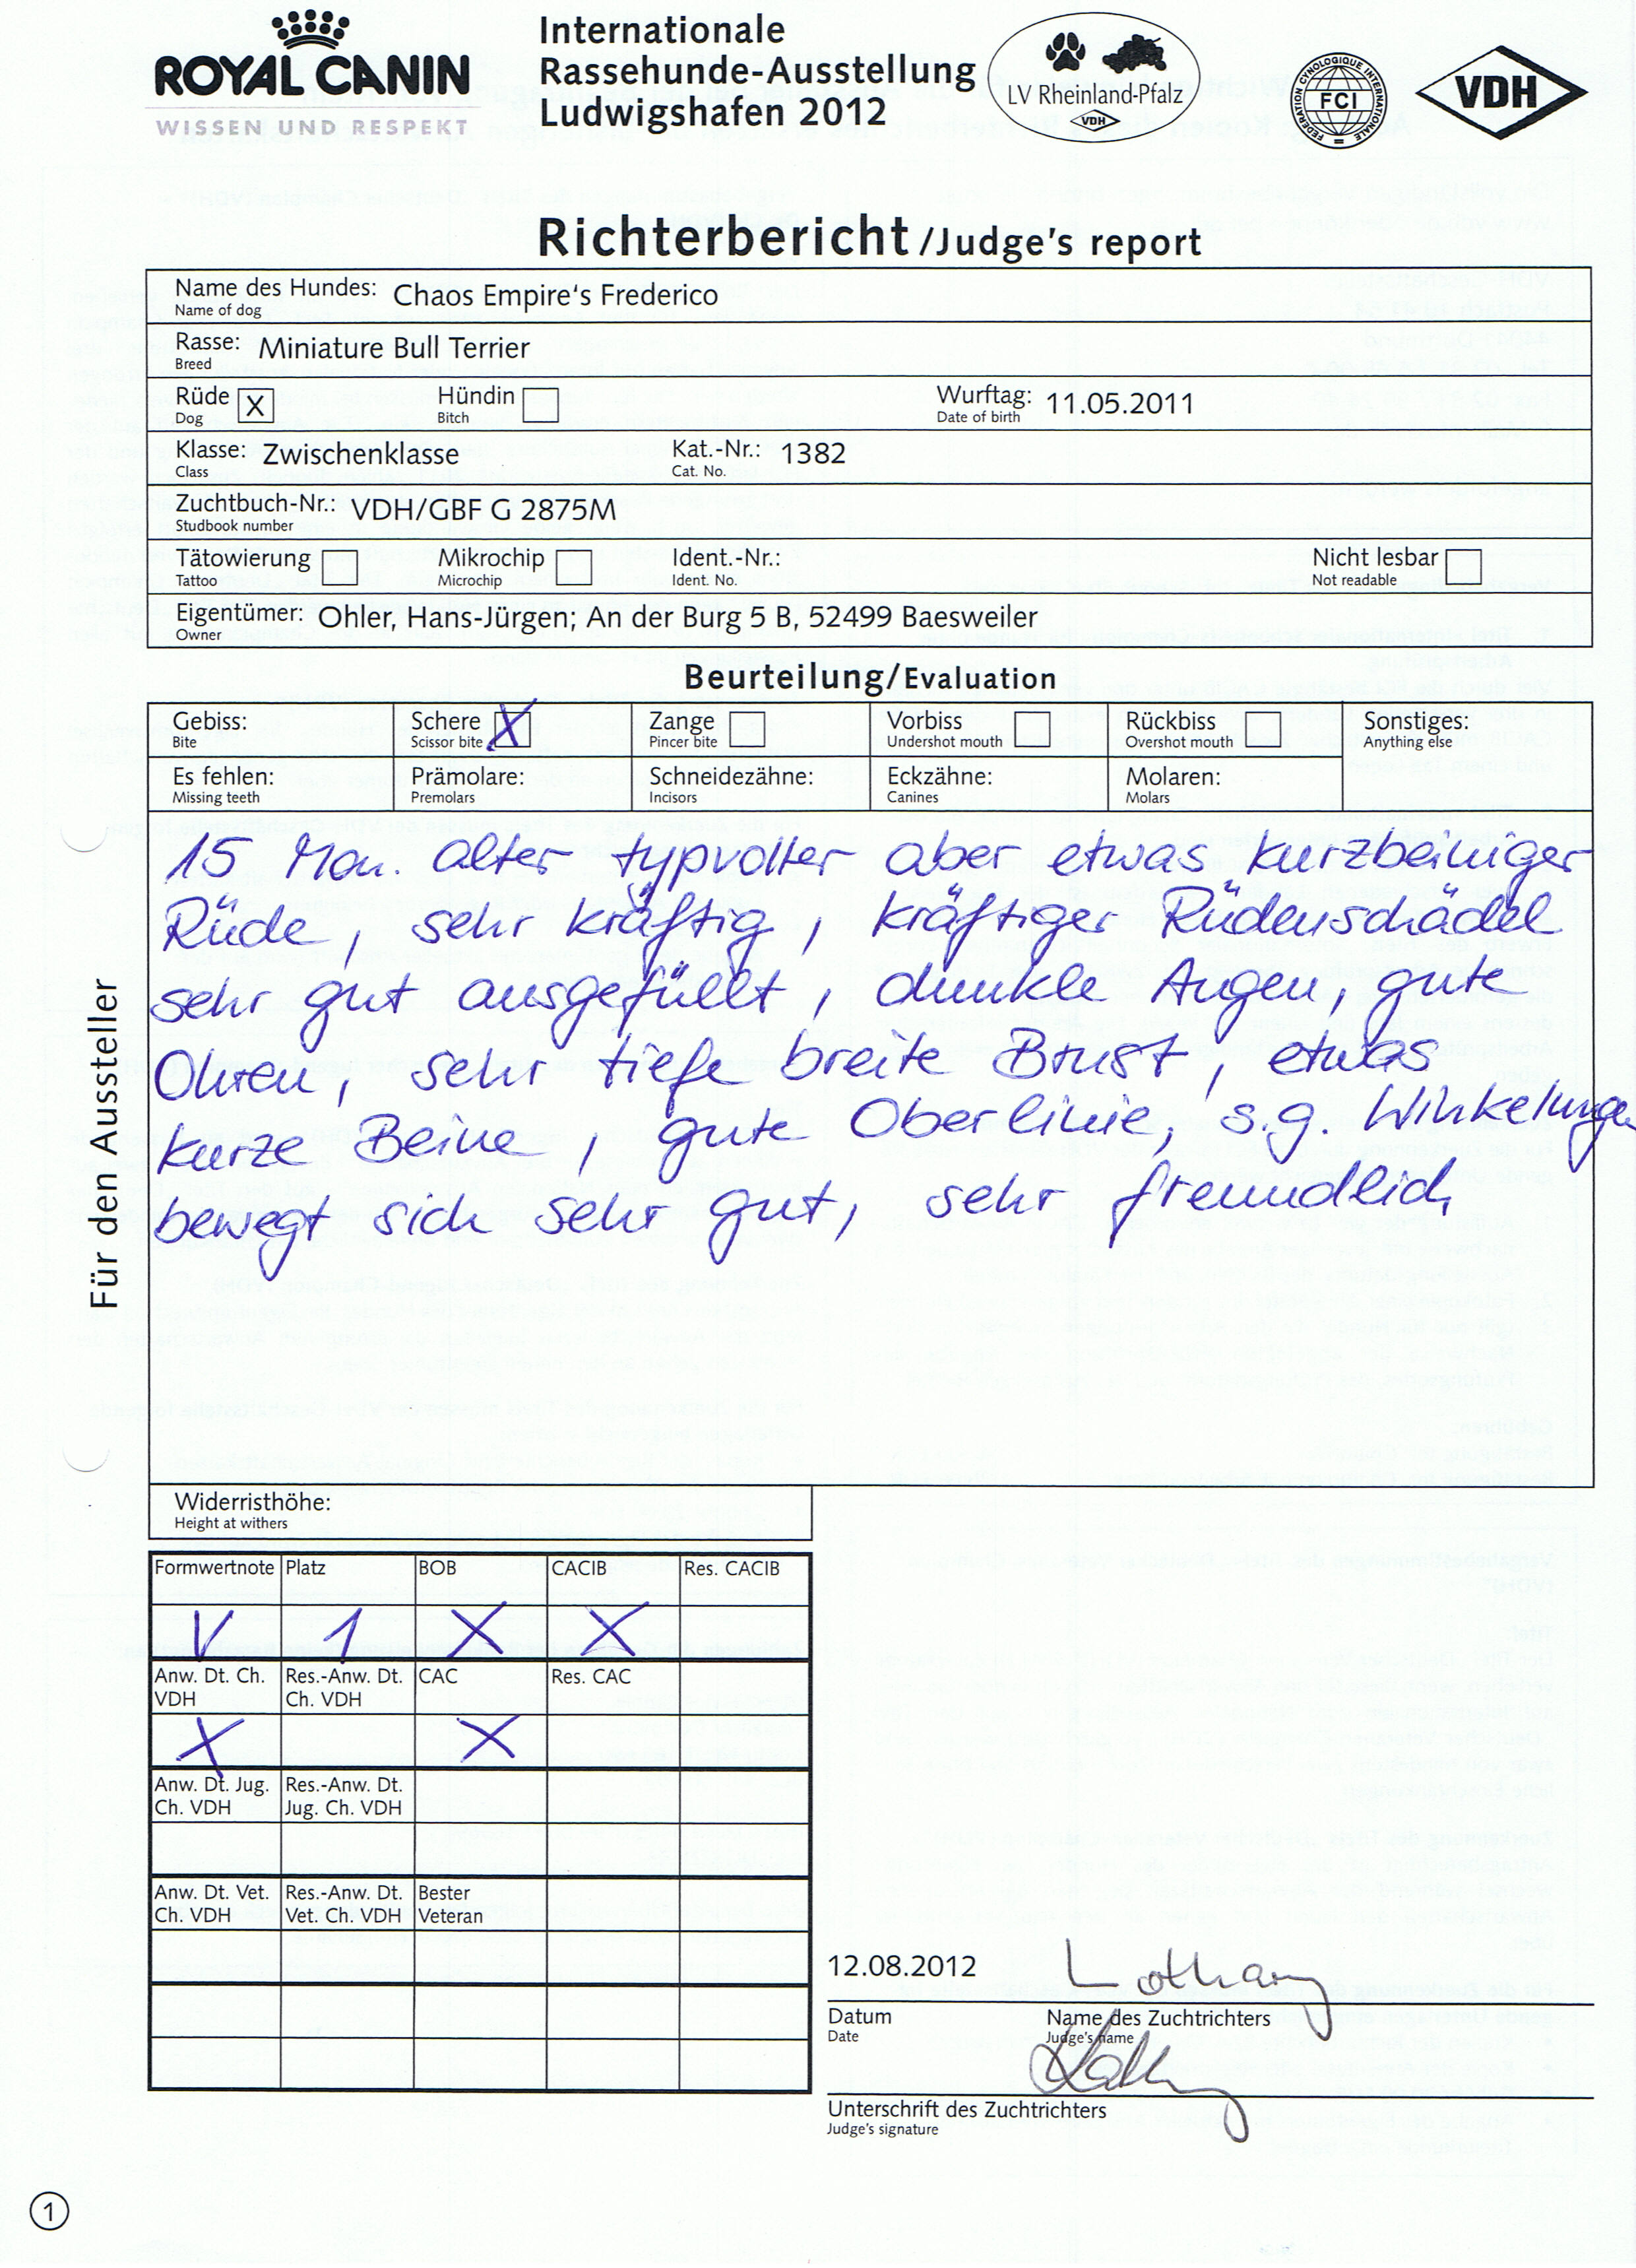 ROYAL CANIN
WISSEN UND RESPEKT
Internationale
Rassehunde-Ausstellung
Ludwigshafen 2012
LV Rheinland-Pfalz
VDH
FEDERATION CYNOLOGIQUE INTERNATIONALE
FCI
VDH
Richterbericht/Judge's report
Name des Hundes: Chaos Empire's Frederico
Name of dog
Rasse: Miniature Bull Terrier
Breed
Rüde X Hündin Wurftag: 11.05.2011
Dog Bitch Date of birth
Klasse: Zwischenklasse Kat.-Nr.: 1382
Class Cat. No.
Zuchtbuch-Nr.: VDH/GBF G 2875M
Studbook number
Tätowierung Mikrochip Ident.-Nr.: Nicht lesbar
Tattoo Microchip Ident. No. Not readable
Eigentümer: Ohler, Hans-Jürgen; An der Burg 5 B, 52499 Baesweiler
Owner
Beurteilung/Evaluation
Gebiss: Schere X Zange Vorbiss Rückbiss Sonstiges:
Bite Scissor bite Pincer bite Undershot mouth Overshot mouth Anything else
Es fehlen: Prämolare: Schneidezähne: Eckzähne: Molaren:
Missing teeth Premolars Incisors Canines Molars
15 Mon. alter typvoller aber etwas kurzbeiniger
Rüde, sehr kräftig, kräftiger Rüdenschädel
sehr gut ausgefüllt, dunkle Augen, gute
Ohren, sehr tiefe breite Brust, etwas
kurze Beine, gute Oberlinie, s.g. Winkelungen
bewegt sich sehr gut, sehr freundlich
Für den Aussteller
Widerristhöhe:
Height at withers
Formwertnote Platz BOB CACIB Res. CACIB
V 1 X X
Anw. Dt. Ch. Res.-Anw. Dt. CAC Res. CAC
VDH Ch. VDH
X X
Anw. Dt. Jug. Res.-Anw. Dt.
Ch. VDH Jug. Ch. VDH
Anw. Dt. Vet. Res.-Anw. Dt. Bester
Ch. VDH Vet. Ch. VDH Veteran
12.08.2012
Datum Name des Zuchtrichters
Date Judge's name
Unterschrift des Zuchtrichters
Judge's signature
1